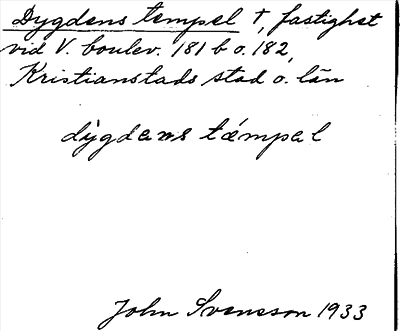 Dygdens tempel †, fastighet
vid V. boulev. 181 b o. 182,
Kristianstads stad o. län
dýgdens témpel
John Svensson 1933